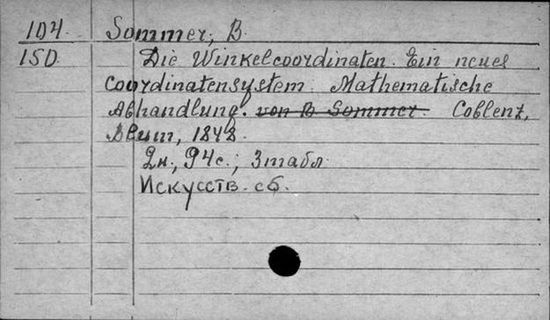 104. Sommer, B.
150. Die Winkelcoordinaten. Ein neues
Coordinatensystem. Mathematische
Abhandlung. von B Sommer. Coblenz,
Blum, 1848.
2н., 94с.; 3 табл.
Искусств. сб.